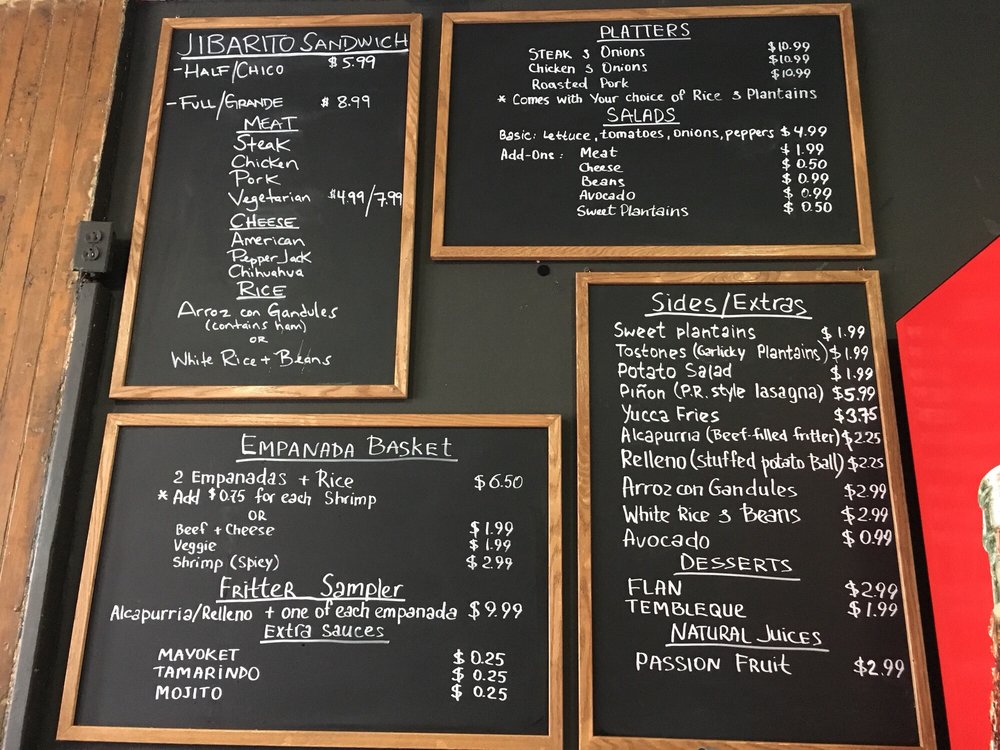 JIBARITO SANDWICH
-HALF/CHICO $5.99
-FULL/GRANDE $8.99
MEAT
Steak
Chicken
Pork
Vegetarian $4.99/7.99
CHEESE
American
Pepper Jack
Chihuahua
RICE
Arroz con Gandules
(contains ham)
OR
White Rice + Beans
PLATTERS
STEAK & Onions $10.99
Chicken & Onions $10.99
Roasted Pork $10.99
* Comes with Your choice of Rice & Plantains
SALADS
Basic: Lettuce, tomatoes, onions, peppers $4.99
Add-Ons: Meat $1.99
Cheese $0.50
Beans $0.99
Avocado $0.99
Sweet Plantains $0.50
EMPANADA BASKET
2 Empanadas + Rice $6.50
* Add $0.75 for each Shrimp
OR
Beef + Cheese $1.99
Veggie $1.99
Shrimp (Spicy) $2.99
Fritter Sampler
Alcapurria/Relleno + one of each empanada $9.99
Extra Sauces
MAYOKET $0.25
TAMARINDO $0.25
MOJITO $0.25
Sides/Extras
Sweet plantains $1.99
Tostones (Garlicky Plantains) $1.99
Potato Salad $1.99
Piñon (P.R. style lasagna) $5.99
Yucca Fries $3.75
Alcapurria (Beef-filled fritter) $2.25
Relleno (stuffed potato Ball) $2.25
Arroz con Gandules $2.99
White Rice & Beans $2.99
Avocado $0.99
DESSERTS
FLAN $2.99
TEMBLEQUE $1.99
NATURAL JUICES
PASSION FRUIT $2.99